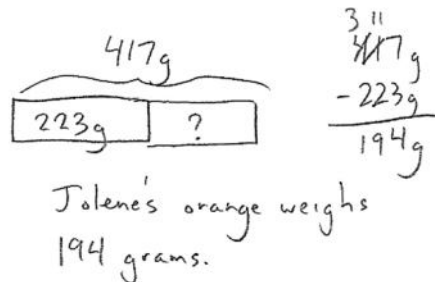 417g
223g ?
3 11
417g
- 223g
194g
Jolene's orange weighs
194 grams.